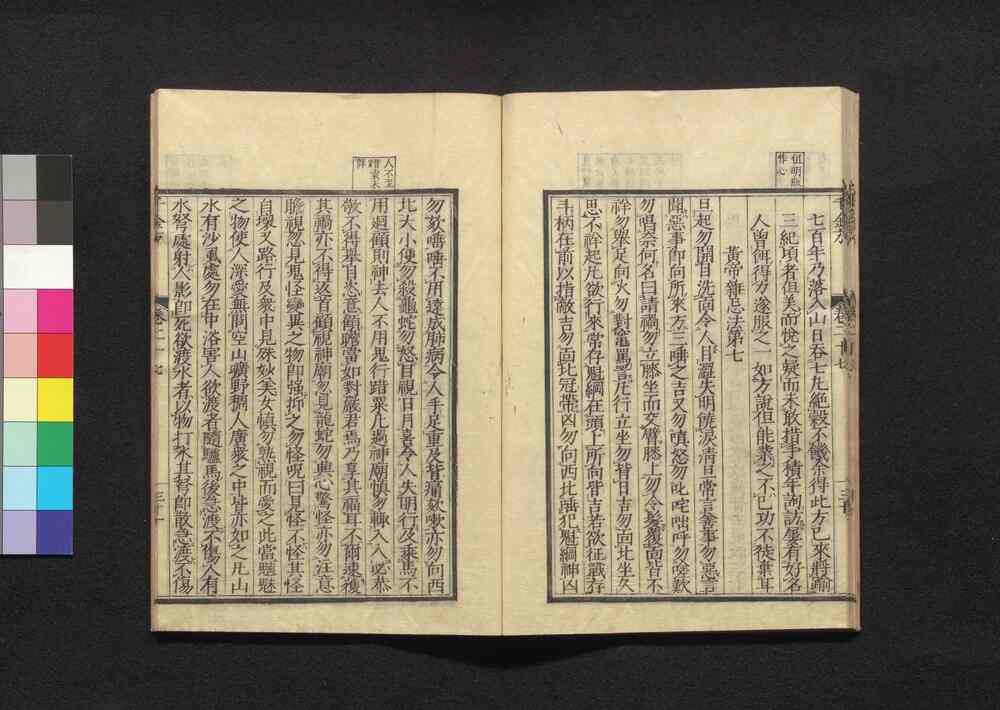 七百年乃落入山日吞七丸絕穀不饑余得此方已來將逾
三紀頃者但美而悅之疑而未敢措手積年詢訪屢有好名
人曾餌得力遂服之一如方說但能業之不已功不徒棄耳
黃帝雜忌法第七
旦起勿開目洗面令人目澀失明饒淚清旦常言善事勿惡言
聞惡事即向所來方三唾之吉又勿嗔怒勿叱咤咄呼勿嗟歎
勿唱奈何名曰請禍勿立膝坐而交臂膝上勿令髮覆面皆不
祥勿舉足向火勿對竈罵詈凡行立坐勿背日吉勿面北坐久
思不祥起凡欲行來常存魁綱在頭上所向皆吉若欲征戰存
斗柄在前以指敵吉勿面北冠帶凶勿向西北唾犯魁綱神凶
勿咳唾唾不用遠成肺病令人手足重及背痛欬嗽亦勿向西
北大小便勿殺龜蛇勿怒目視日月喜令人失明行及乘馬不
用迴顧則神去人不用鬼行踖粟凡過神廟慎勿輒入入必恭
敬不得舉目恣意顧瞻當如對嚴君焉乃享其福耳不爾速獲
其禍亦不得返首顧視神廟勿見龍蛇勿興心驚怪亦勿注意
瞻視忽見鬼怪變異之物即强抑之勿怪呪曰見怪不怪其怪
自壞又路行及衆中見殊妙美女慎勿熟視而愛之此當魑魅
之物使人深愛無問空山曠野稠人廣衆之中皆亦如之凡山
水有沙虱處勿在中浴害人欲渡者隨驢馬後急渡不傷人有
水弩處射人影即死欲渡水者以物打水其弩即散急渡不傷